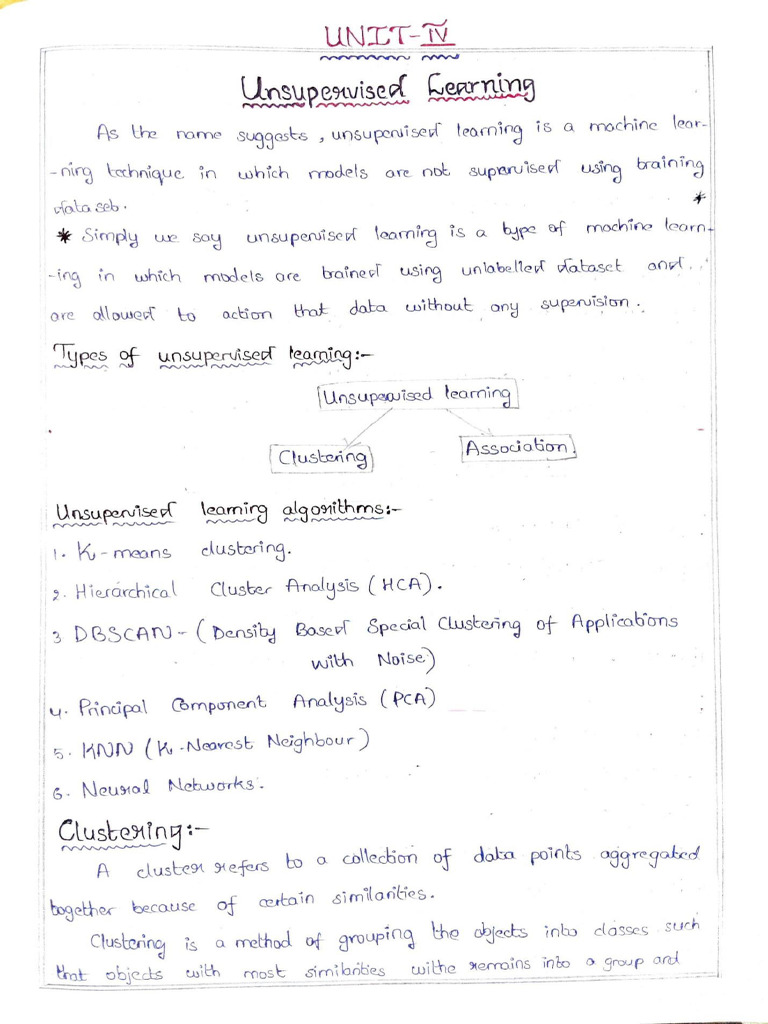 UNIT-IV
Unsupervised Learning
As the name suggests, unsupervised learning is a machine lear-
-ning technique in which models are not supervised using training
dataset.
*
* Simply we say unsupervised learning is a type of machine learn-
-ing in which models are trained using unlabelled dataset and..
are allowed to action that data without any supervision.
Types of unsupervised learning:-
Unsupervised learning
Clustering
Association.
Unsupervised learning algorithms:-
1. K-means clustering.
2. Hierarchical Cluster Analysis (HCA).
3 DBSCAN - (Density Based Special Clustering of Applications
with Noise)
4. Principal Component Analysis (PCA)
5. KNN (K-Nearest Neighbour)
6. Neural Networks.
Clustering:-
A cluster refers to a collection of data points aggregated
together because of certain similarities.
Clustering is a method of grouping the objects into classes such
that objects with most similarities withe remains into a group and